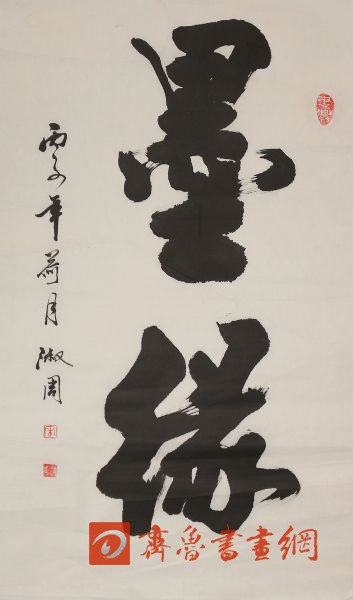 墨缘
丙子年荷月淑周
齊魯書畫網